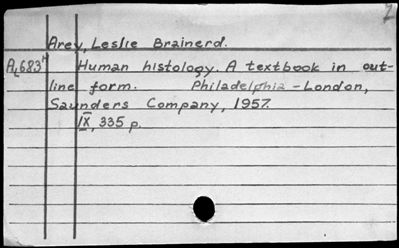 Arey, Leslie Brainerd.
A683 Human histology. A textbook in out-
line form. Philadelphia - London,
Saunders Company, 1957.
IX, 335 p.